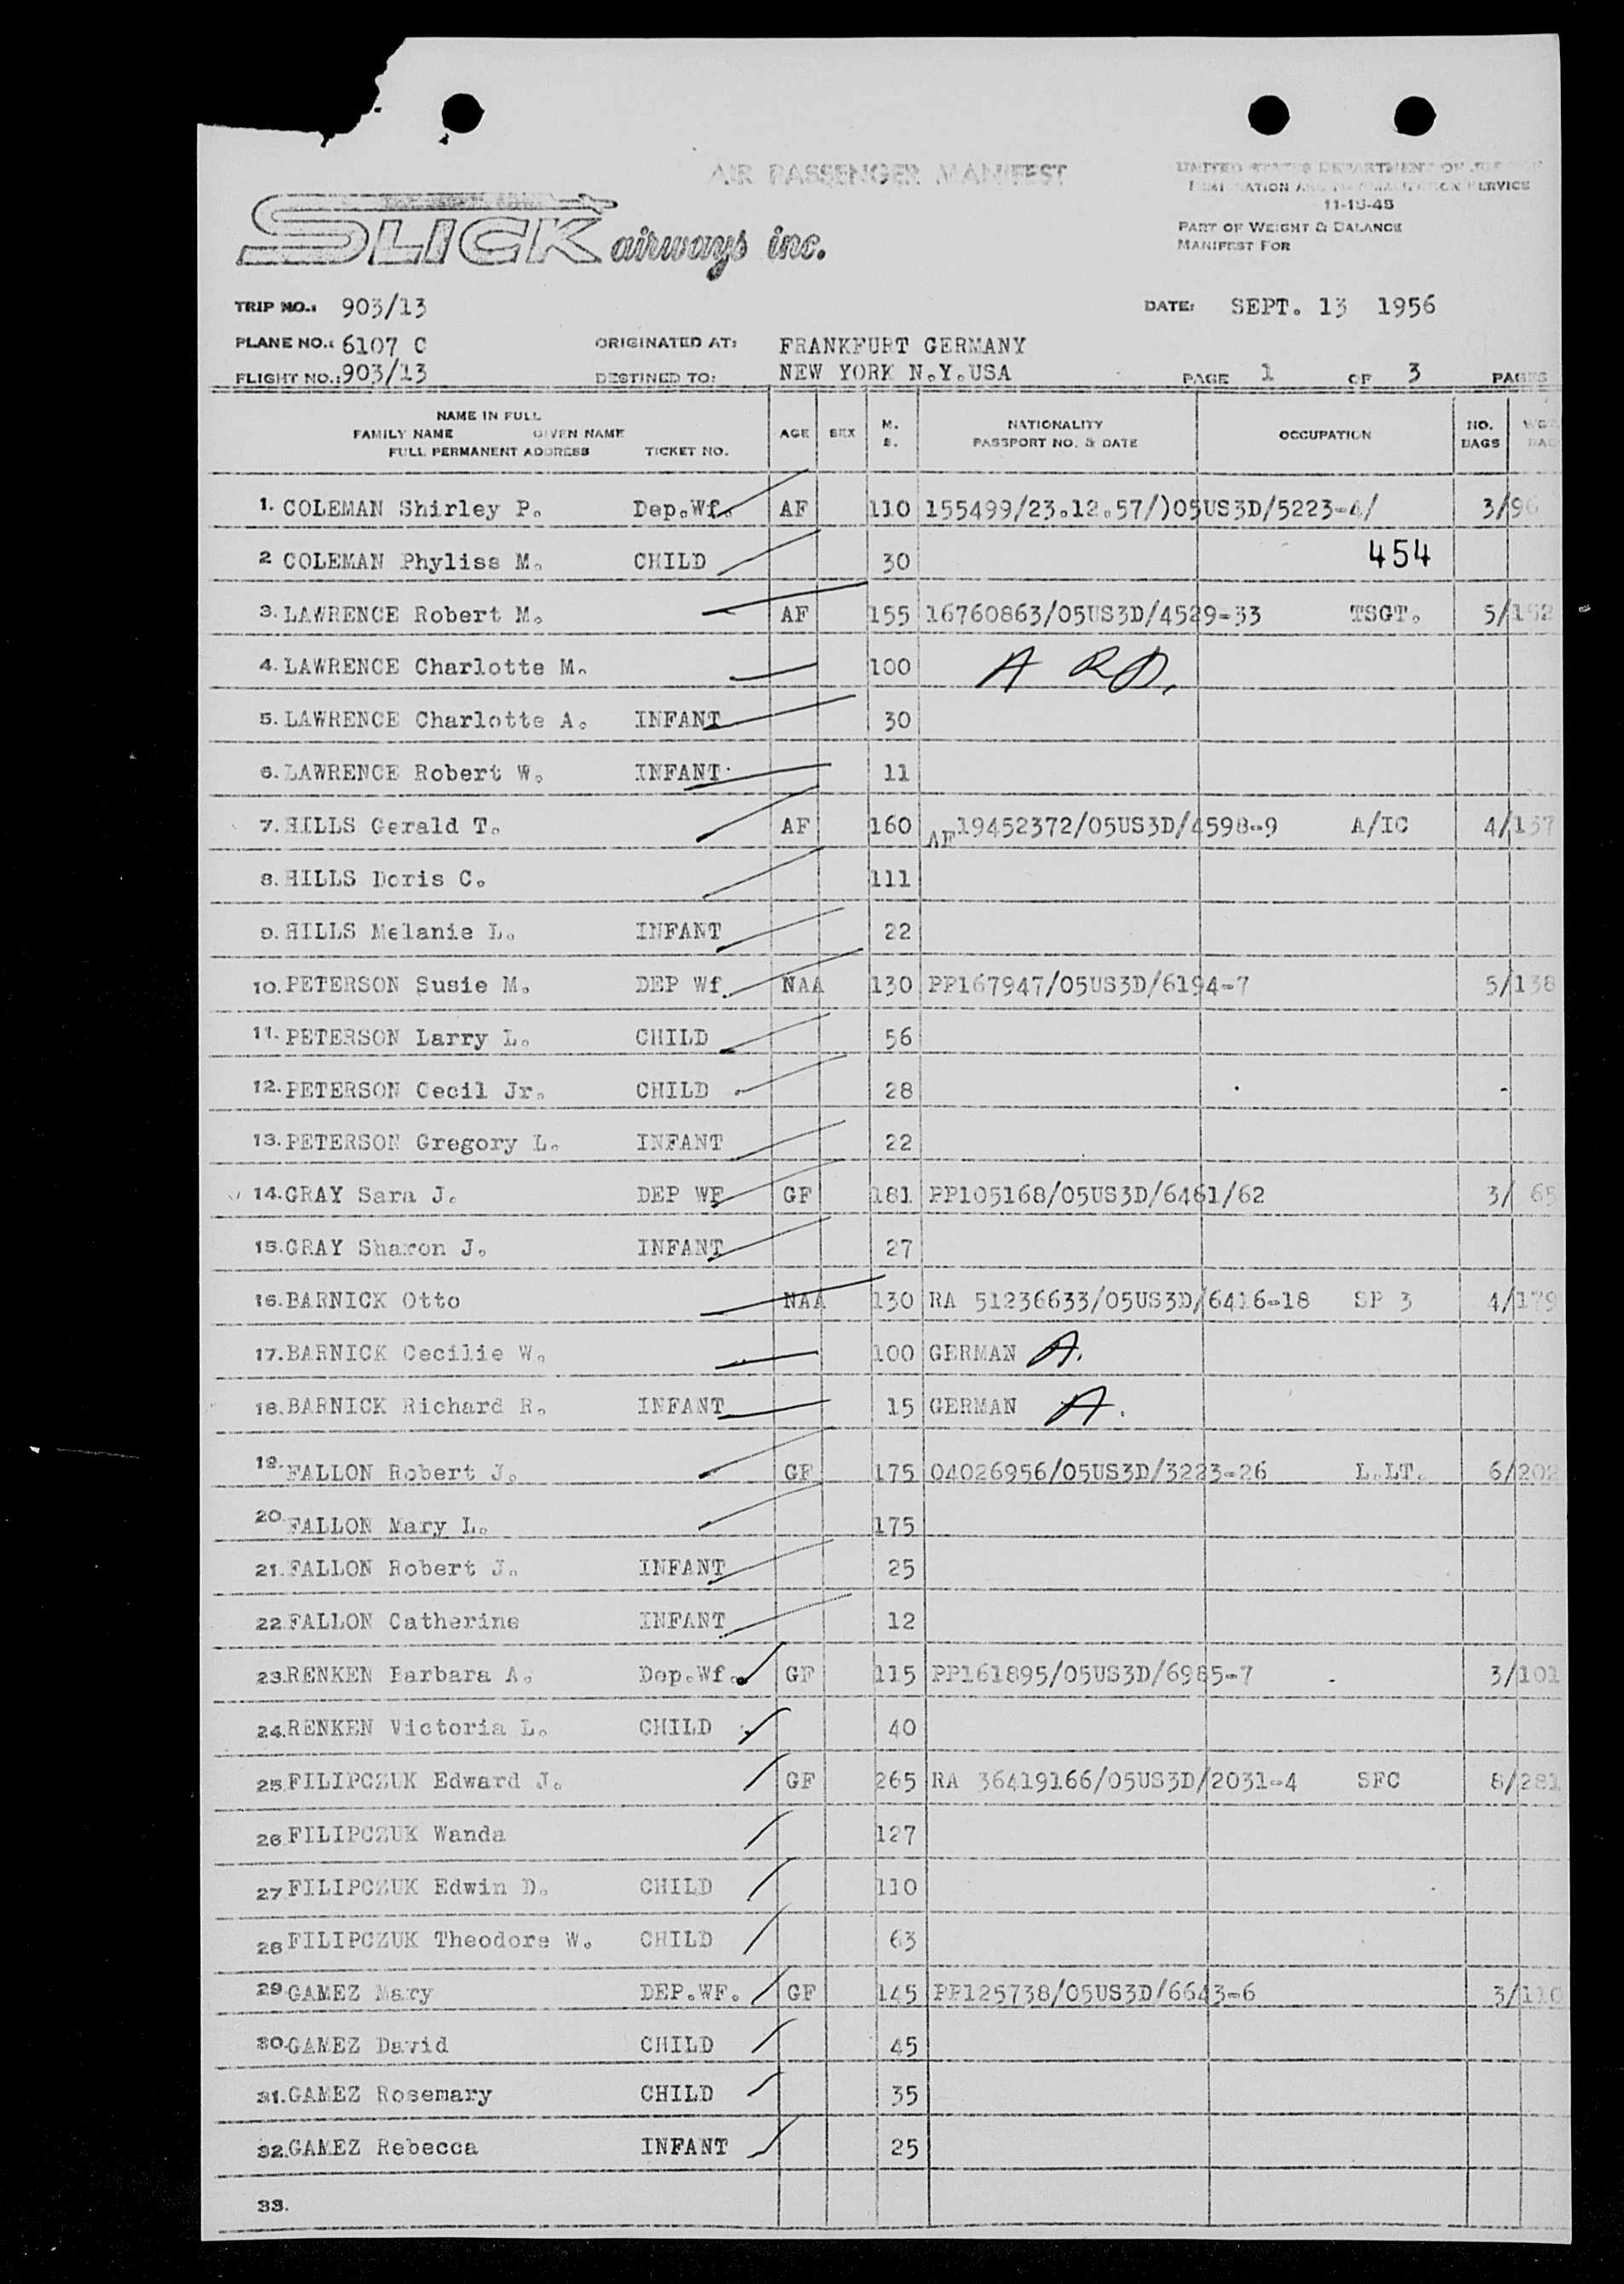 AIR PASSENGER MANIFEST
UNITED STATES DEPARTMENT OF
SERVICE
11-15-45
PART OF WEIGHT & BALANCE
MANIFEST FOR
SLICK airways inc.
TRIP NO.: 903/13 DATE: SEPT. 13 1956
PLANE NO.: 6107 C ORIGINATED AT: FRANKFURT GERMANY
FLIGHT NO.: 903/13 DESTINED TO: NEW YORK N.Y.USA PAGE 1 OF 3 PAGES
NAME IN FULL
FAMILY NAME GIVEN NAME AGE SEX M. S. NATIONALITY PASSPORT NO. & DATE OCCUPATION NO. BAGS
FULL PERMANENT ADDRESS TICKET NO.
1. COLEMAN Shirley P. Dep.Wf. AF 110 155499/23.12.57/)05US3D/5223-4/ 3/96
2 COLEMAN Phyliss M. CHILD 30 454
3. LAWRENCE Robert M. AF 155 16760863/05US3D/4529-33 TSGT. 5/152
4. LAWRENCE Charlotte M. 100 A
5. LAWRENCE Charlotte A. INFANT 30
6. LAWRENCE Robert W. INFANT 11
7. HILLS Gerald T. AF 160 AF19452372/05US3D/4598-9 A/IC 4/157
8. HILLS Doris C. 111
9. HILLS Melanie L. INFANT 22
10. PETERSON Susie M. DEP Wf. NAA 130 PP167947/05US3D/6194-7 5/138
11. PETERSON Larry L. CHILD 56
12. PETERSON Cecil Jr. CHILD 28
13. PETERSON Gregory L. INFANT 22
14. GRAY Sara J. DEP WF GF 181 PP105168/05US3D/6461/62 3/ 65
15. GRAY Sharon J. INFANT 27
16. BARNICK Otto NAA 130 RA 51236633/05US3D/6416-18 SP 3 4/179
17. BARNICK Cecilie W. 100 GERMAN A.
18. BARNICK Richard R. INFANT 15 GERMAN A.
19. FALLON Robert J. GF 175 04026956/05US3D/3223-26 L.LT. 6/202
20. FALLON Mary L. 175
21. FALLON Robert J. INFANT 25
22 FALLON Catherine INFANT 12
23. RENKEN Barbara A. Dep.Wf. GF 115 PP161895/05US3D/6985-7 3/101
24. RENKEN Victoria L. CHILD 40
25. FILIPCZUK Edward J. GF 265 RA 36419166/05US3D/2031-4 SFC 8/281
26. FILIPCZUK Wanda 127
27. FILIPCZUK Edwin D. CHILD 110
28 FILIPCZUK Theodore W. CHILD 63
29 GAMEZ Mary DEP.WF. GF 145 PP125738/05US3D/6643-6 3/110
30. GAMEZ David CHILD 45
31. GAMEZ Rosemary CHILD 35
32. GAMEZ Rebecca INFANT 25
33.